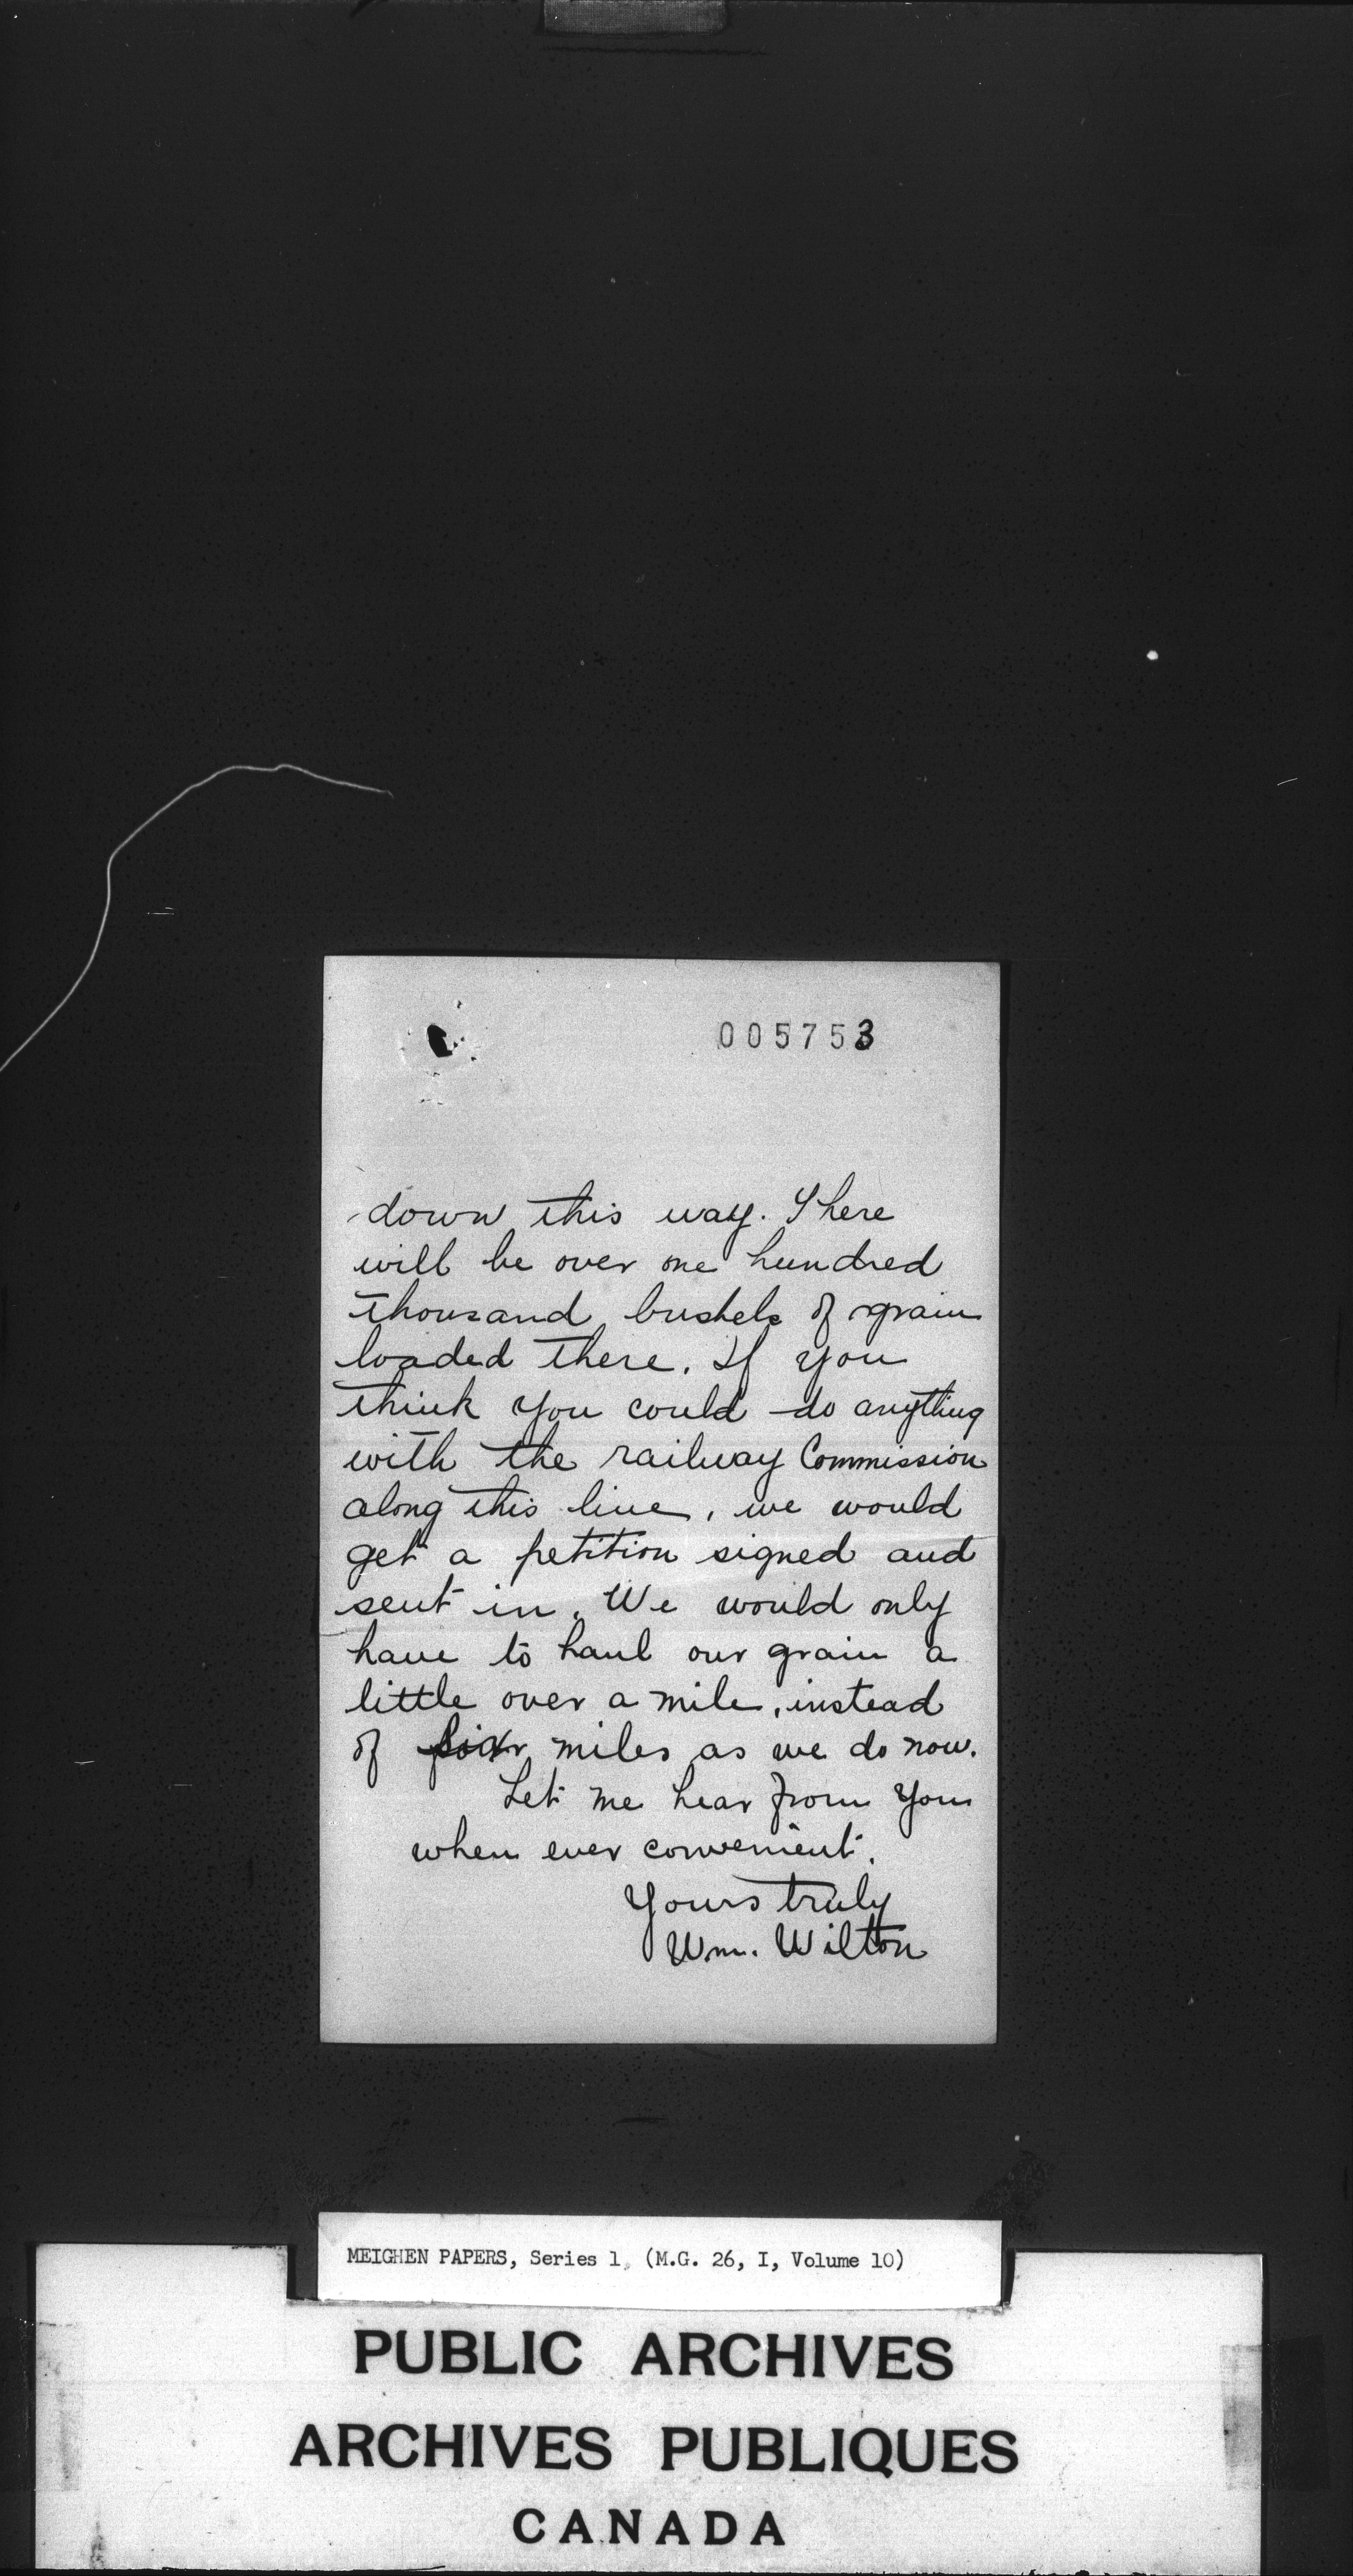 005753
down this way. There
will be over one hundred
thousand bushels of grain
loaded there. If you
think you could do anything
with the railway Commission
along this line, we would
get a petition signed and
sent in. We would only
have to haul our grain a
little over a mile, instead
of miles as we do now.
Let me hear from you
when ever convenient.
Yours truly
Wm. Wilton
MEIGHEN PAPERS, Series 1, (M.G. 26, I, Volume 10)
PUBLIC ARCHIVES
ARCHIVES PUBLIQUES
CANADA